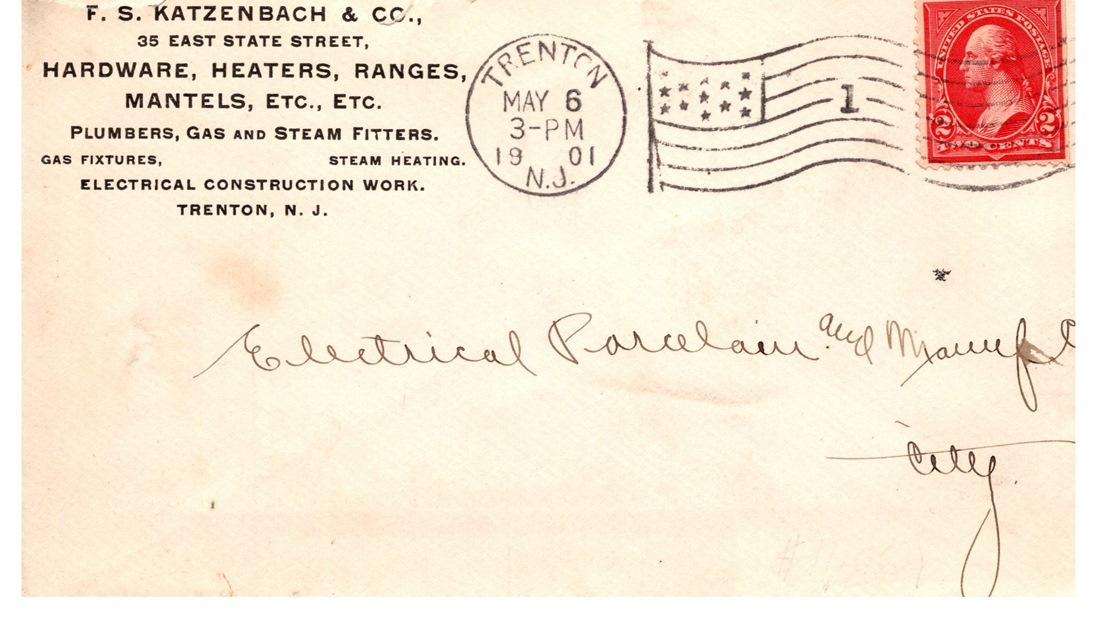 F. S. KATZENBACH & CO.,
35 EAST STATE STREET,
HARDWARE, HEATERS, RANGES,
MANTELS, ETC., ETC.
PLUMBERS, GAS AND STEAM FITTERS.
GAS FIXTURES, STEAM HEATING.
ELECTRICAL CONSTRUCTION WORK.
TRENTON, N. J.
TRENTON
MAY 6
3-PM
19 01
N.J.
1
UNITED STATES POSTAGE
2 2
TWO CENTS
Electrical Porcelain and
City